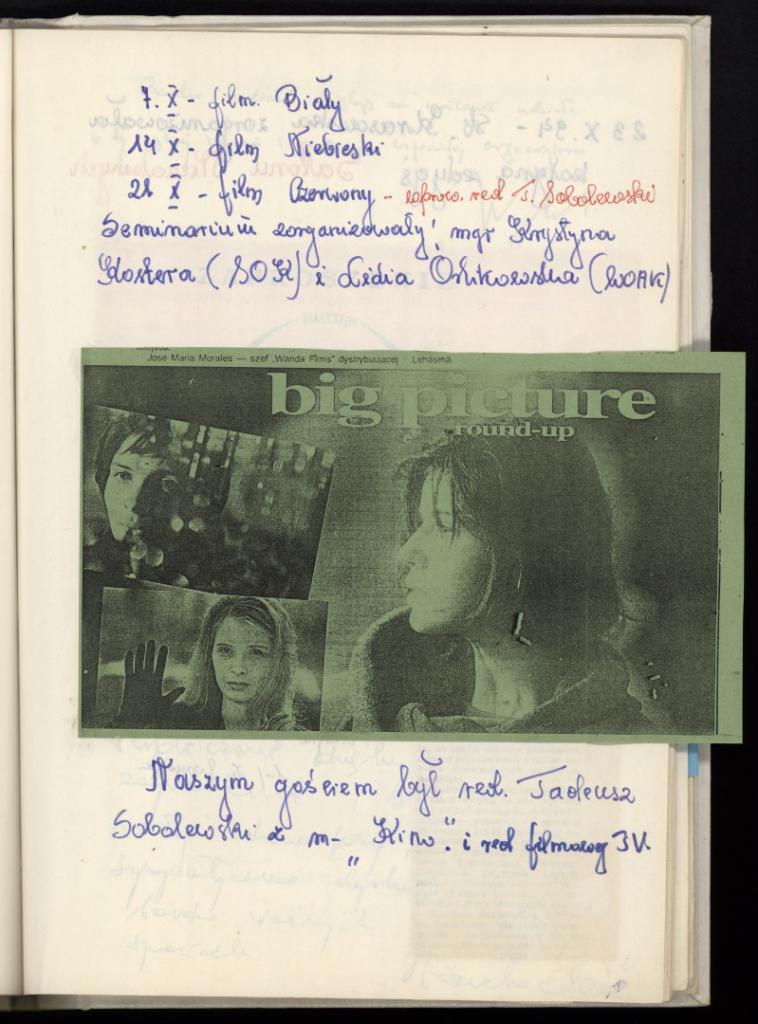 7. X - film. Biały
14 X - film Niebieski
21 X - film Czerwony - wprow. red T. Sobolewski
Seminarium zorganizowały: mgr Krystyna
Kostera (SOK) i Lidia (WOAK)
Jose Maria Morales — szef „Wanda Films" dystrybuującej Lehäsmä
big picture
round-up
Naszym gościem był red. Tadeusz
Sobolewski z m- „Kino". i red filmowej TV.